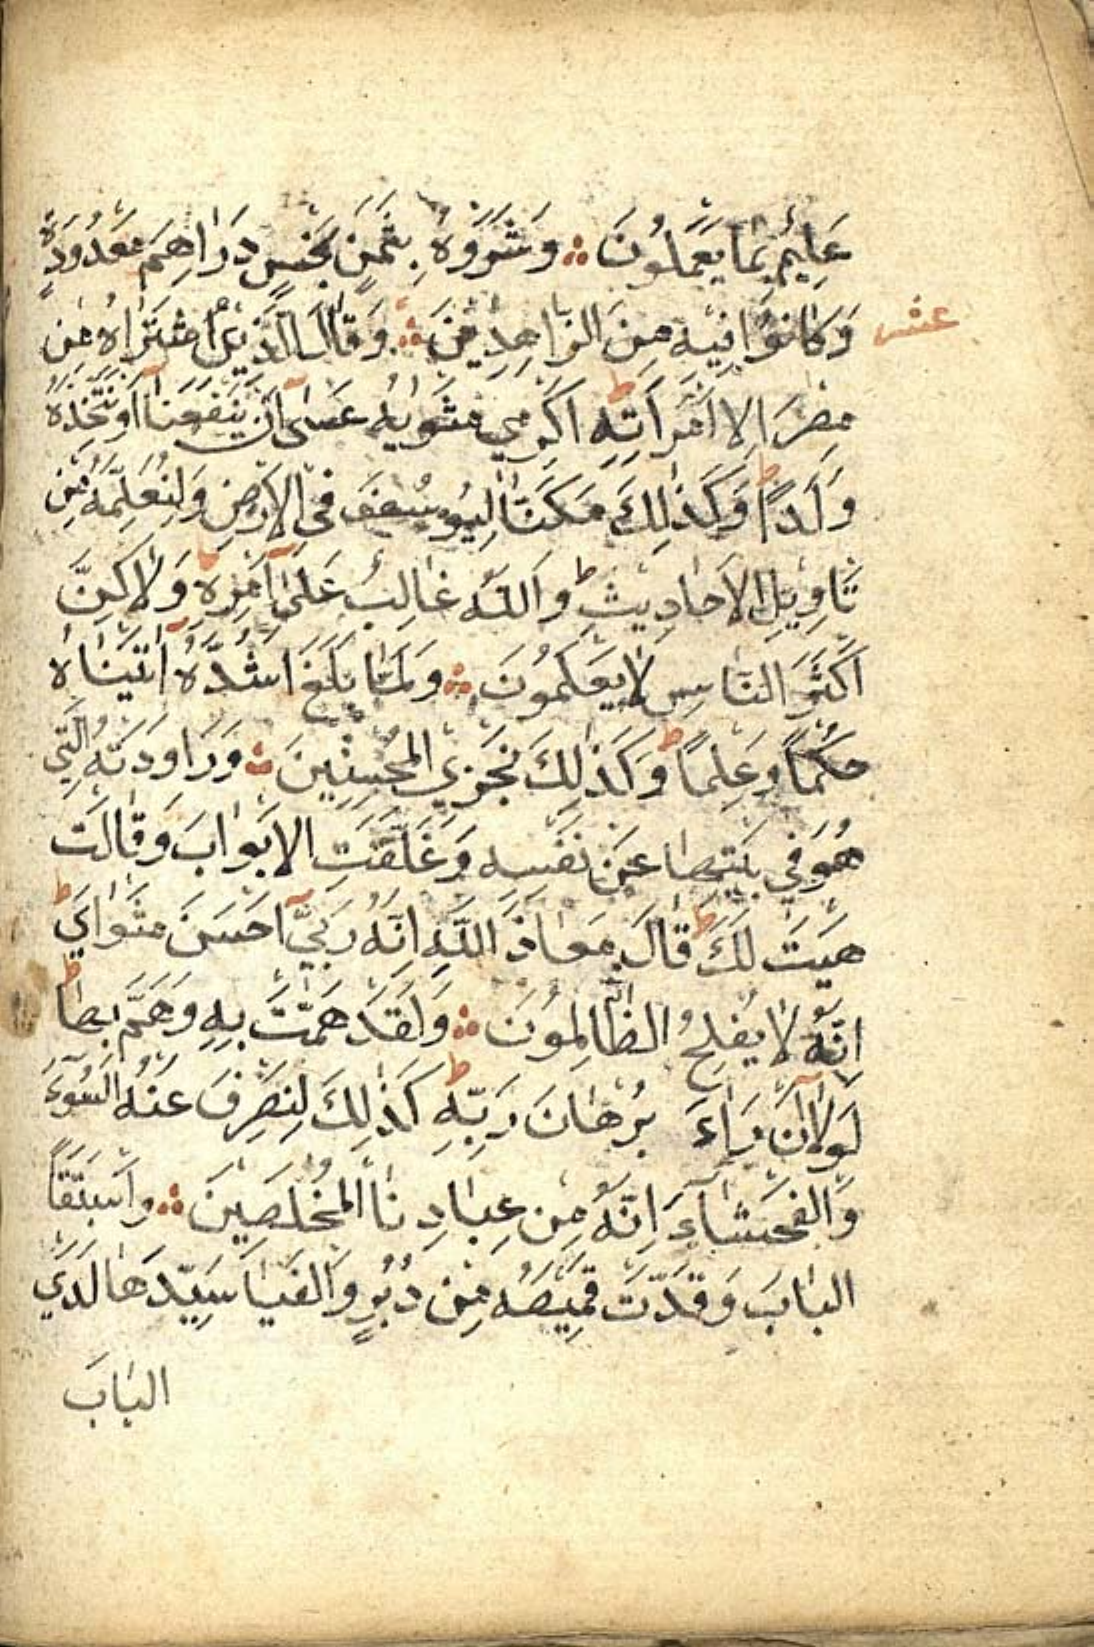 عَلِيمٌ بِمَا يَعْمَلُونَ ۞ وَشَرَوْهُ بِثَمَنٍ بَخْسٍ دَرَاهِمَ مَعْدُودَةٍ
عشر
وَكَانُوا فِيهِ مِنَ الزَّاهِدِينَ ۞ وَقَالَ الَّذِي اشْتَرَاهُ مِنْ
مِصْرَ لِامْرَاَتِهِ اَكْرِمِي مَثْوَايهُ عَسٰٓى اَنْ يَنْفَعَنَٓا اَوْ نَتَّخِذَهُ
وَلَدًا ط وَكَذٰلِكَ مَكَّنَّا لِيُوسُفَ فِي الْاَرْضِ وَلِنُعَلِّمَهُ مِنْ
تَاْوِيلِ الْاَحَادِيثِ ط وَاللّٰهُ غَالِبٌ عَلٰٓى اَمْرِهِ وَلَاكِنَّ
اَكْثَرَ النَّاسِ لَا يَعْلَمُونَ ۞ وَلَمَّا بَلَغَ اَشُدَّهُٓ اٰتَيْنَاهُ
حُكْمًا وَعِلْمًا ط وَكَذٰلِكَ نَجْزِي الْمُحْسِنِينَ ۞ وَرَاوَدَتْهُ الَّتِي
هُوَ فِي بَيْتِهَا عَنْ نَفْسِهِ وَغَلَّقَتِ الْاَبْوَابَ وَقَالَتْ
هَيْتَ لَكَ ط قَالَ مَعَاذَ اللّٰهِ اِنَّهُ رَبِّيٓ اَحْسَنَ مَثْوَايَ ط
اِنَّهُ لَا يُفْلِحُ الظَّالِمُونَ ۞ وَلَقَدْ هَمَّتْ بِهِ وَهَمَّ بِهَا ط
لَوْلَٓا اَنْ رَاٰءَ بُرْهَانَ رَبِّهِ ط كَذٰلِكَ لِنَصْرِفَ عَنْهُ السُّوٓءَ
وَالْفَحْشَآءَ اِنَّهُ مِنْ عِبَادِنَا الْمُخْلَصِينَ ۞ وَاسْتَبَقَا
الْبَابَ وَقَدَّتْ قَمِيصَهُ مِنْ دُبُرٍ وَاَلْفَيَا سَيِّدَهَا لَدَي
الْبَابَ